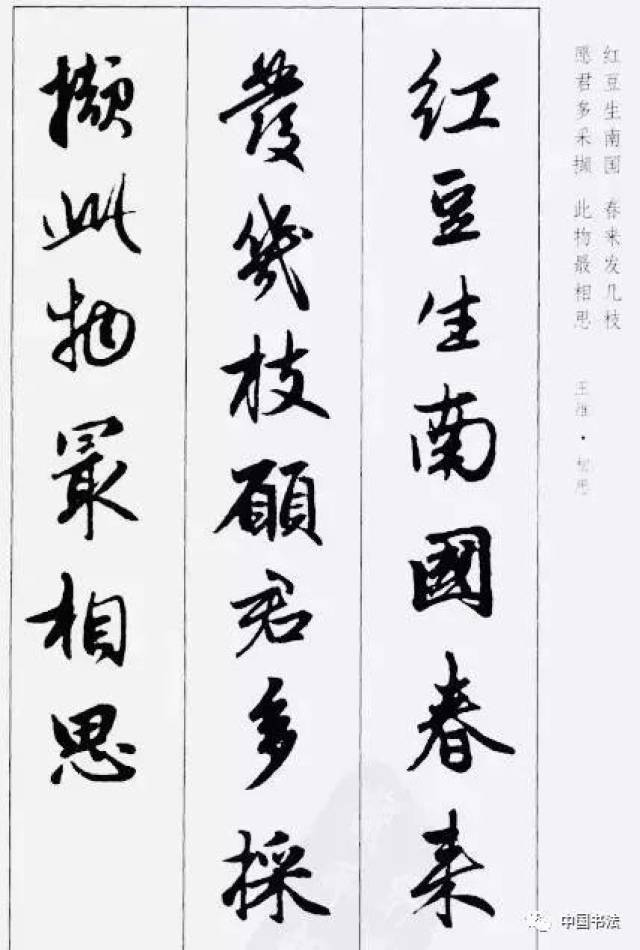 红豆生南国 春来发几枝
愿君多采撷 此物最相思
王维·相思
紅豆生南國春来
發幾枝願君多採
擷此物最相思
中国书法